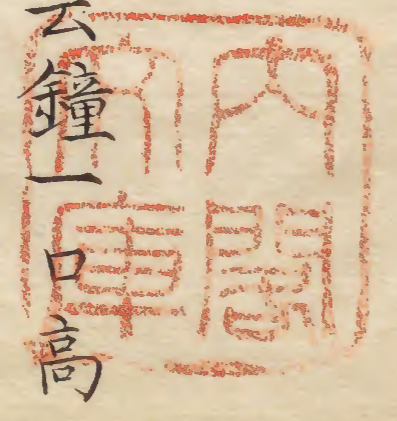 云鐘一口高
内閣文庫